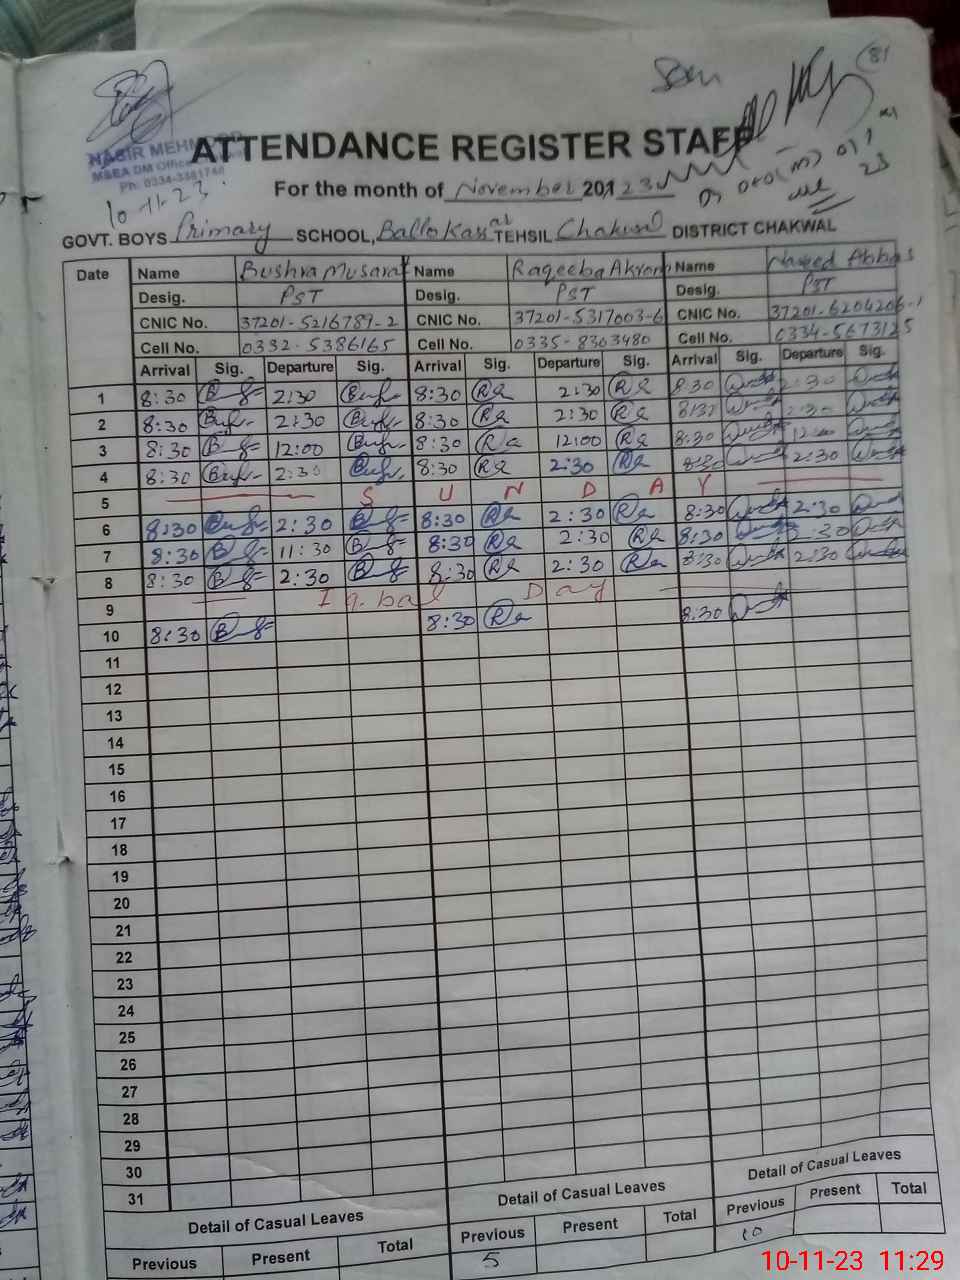 ATTENDANCE REGISTER STAFF
NASIR MEHMOOD
MSEA DM Office
Ph: 0334-3381748
10-11-23
For the month of November 201 23
GOVT. BOYS Primary SCHOOL, Ballokassar TEHSIL Chakwal DISTRICT CHAKWAL
Date Name Bushra Musarat Name Raqeeba Akram Name Naveed Abbas
Desig. PST Desig. PST Desig. PST
CNIC No. 37201-5216789-2 CNIC No. 37201-5317003-6 CNIC No. 37201-6204206-1
Cell No. 0332-5386165 Cell No. 0335-8303480 Cell No. 0334-5673125
Arrival Sig. Departure Sig. Arrival Sig. Departure Sig. Arrival Sig. Departure Sig.
1 8:30 2:30 8:30 2:30 8:30 2:30
2 8:30 2:30 8:30 2:30 8:30 2:30
3 8:30 12:00 8:30 12:00 8:30 12:00
4 8:30 2:30 8:30 2:30 8:30 2:30
5 S U N D A Y
6 8:30 2:30 8:30 2:30 8:30 2:30
7 8:30 11:30 8:30 2:30 8:30 2:30
8 8:30 2:30 8:30 2:30 8:30 2:30
9 Iqbal Day
10 8:30 8:30 8:30
11
12
13
14
15
16
17
18
19
20
21
22
23
24
25
26
27
28
29
30
31
Detail of Casual Leaves Detail of Casual Leaves Detail of Casual Leaves
Previous Present Total Previous Present Total Previous Present Total
5 10
10-11-23 11:29